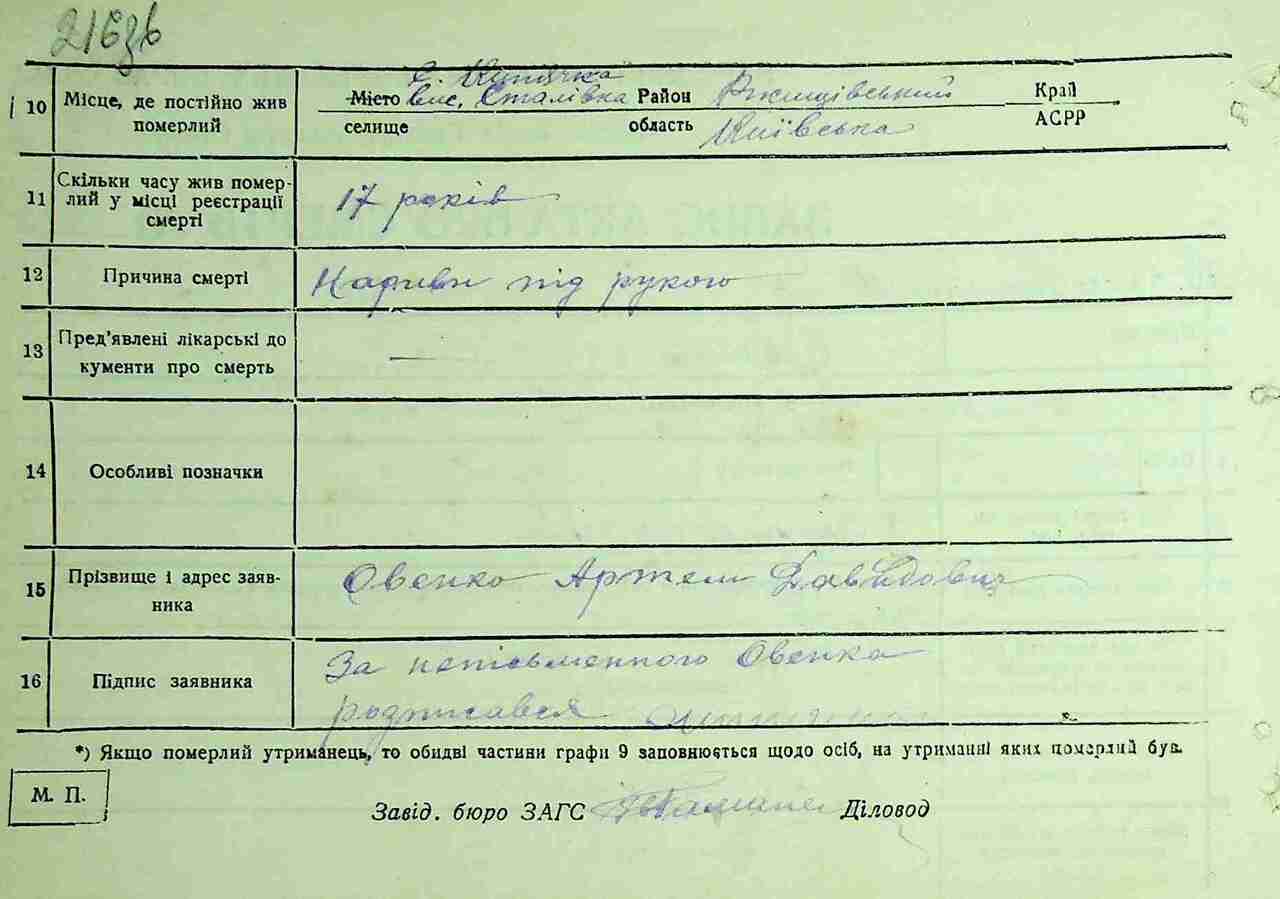 216зв
с. Кип'ячка
10 Місце, де постійно жив Місто вис. Сталівка Район Ржищівський Край
померлий селище область Київська АСРР
11 Скільки часу жив помер-
лий у місці реєстрації 17 років
смерті
12 Причина смерті Нариви під рукою
13 Пред'явлені лікарські до
кументи про смерть —
14 Особливі позначки
15 Прізвище і адрес заяв- Овенко Артем Давидович
ника
16 Підпис заявника За неписьменного Овенка
розписався
*) Якщо померлий утриманець, то обидві частини графи 9 заповнюється щодо осіб, на утриманні яких померлий був.
М. П.
Завід. бюро ЗАГС Діловод